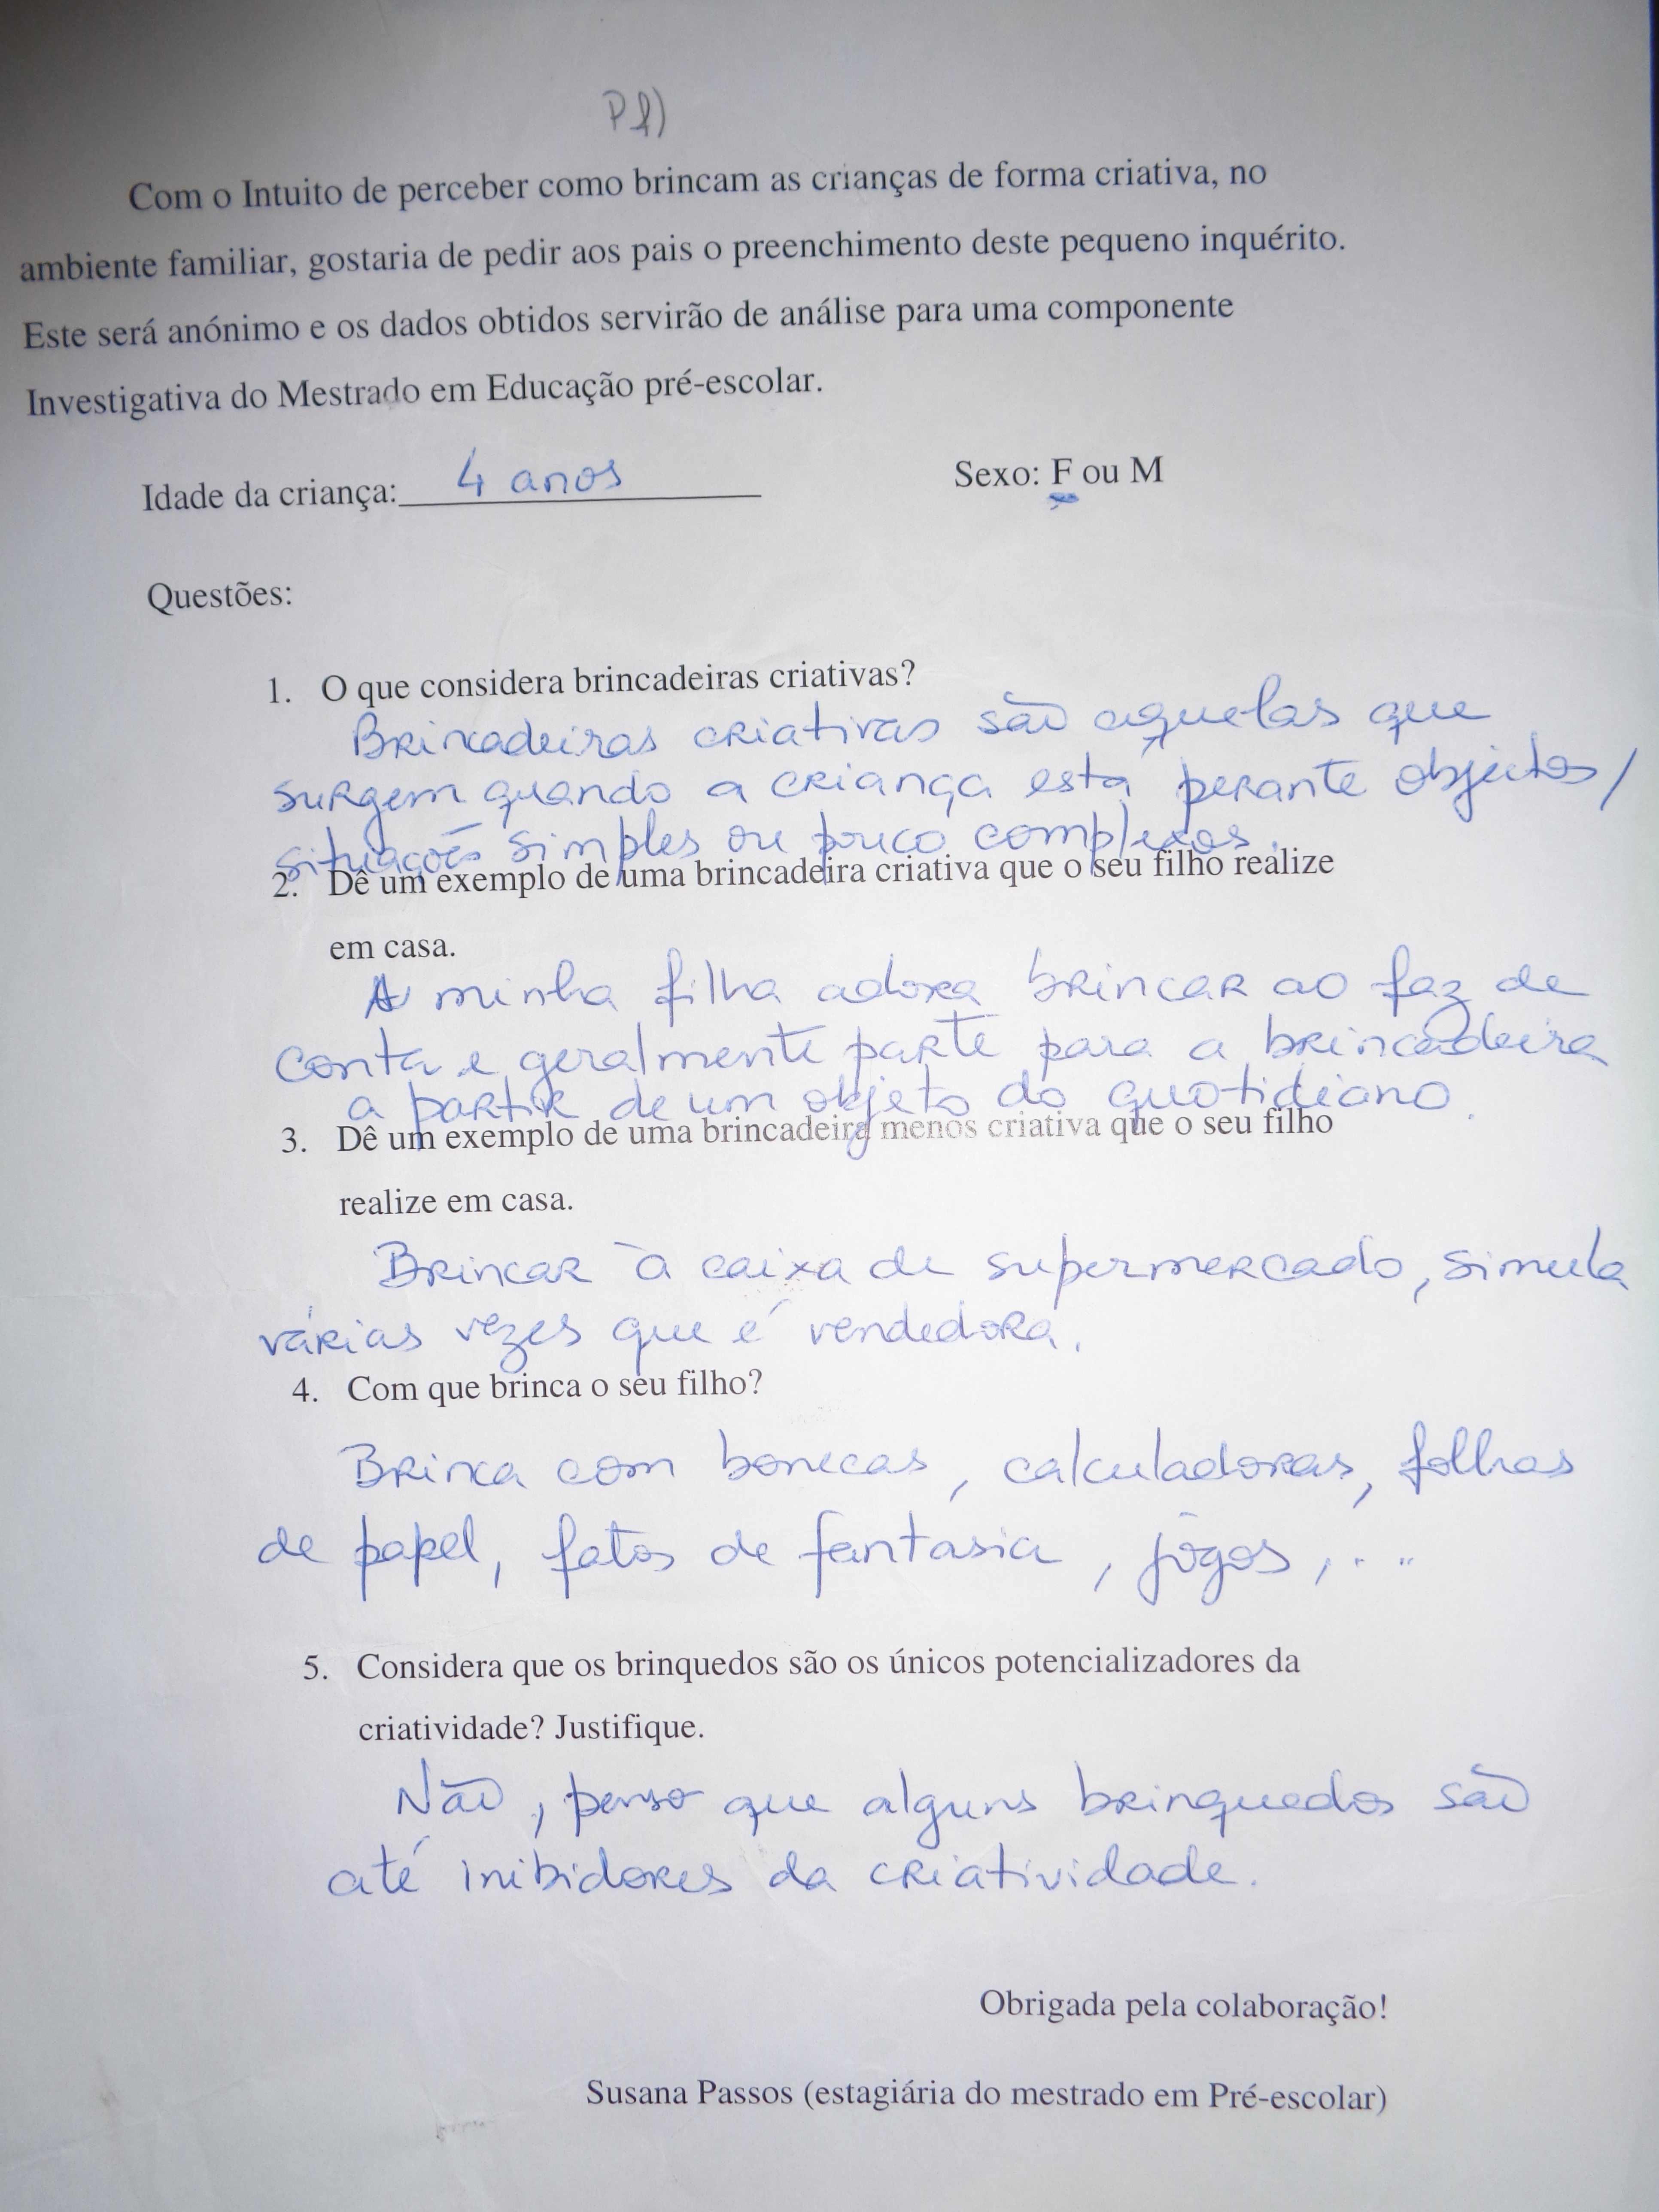 Com o Intuito de perceber como brincam as crianças de forma criativa, no
ambiente familiar, gostaria de pedir aos pais o preenchimento deste pequeno inquérito.
Este será anónimo e os dados obtidos servirão de análise para uma componente
Investigativa do Mestrado em Educação pré-escolar.
Idade da criança: 4 anos Sexo: F ou M
Questões:
1. O que considera brincadeiras criativas?
Brincadeiras criativas são aquelas que
surgem quando a criança está perante objectos/
situações simples ou pouco complexos.
2. Dê um exemplo de uma brincadeira criativa que o seu filho realize
em casa.
A minha filha adora brincar ao faz de
conta e geralmente parte para a brincadeira
a partir de um objeto do quotidiano.
3. Dê um exemplo de uma brincadeira menos criativa que o seu filho
realize em casa.
Brincar à caixa de supermercado, simula
várias vezes que é vendedora.
4. Com que brinca o seu filho?
Brinca com bonecas, calculadoras, folhas
de papel, fatos de fantasia, jogos, ...
5. Considera que os brinquedos são os únicos potencializadores da
criatividade? Justifique.
Não, penso que alguns brinquedos são
até inibidores da criatividade.
Obrigada pela colaboração!
Susana Passos (estagiária do mestrado em Pré-escolar)